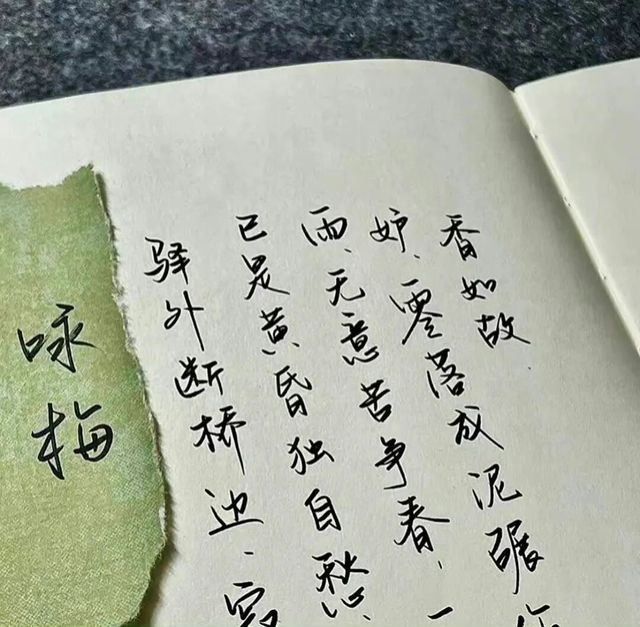 咏梅
驿外断桥边、
已是黄昏独自愁、
雨、无意苦争春,一
妒、零落成泥碾
香如故